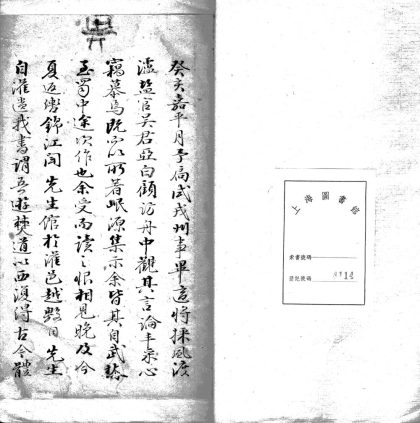 上海圖書館
索書號碼
登記號碼
癸亥嘉平月予扃試戎州事畢這將採風渡
瀘鹽官吳君亞白顧訪舟中觀其言論丰采心
竊慕焉既以所著岷源集示余皆其自武林
至蜀中途次作也余受而讀之恨相見晚及今
夏返旆錦江聞先生館於灌邑越數日先生
自灌遺我書謂吾遊僰道以西復得古今體